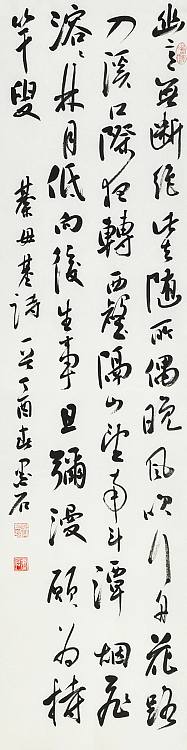 幽意無斷絕此去隨所偶晚風吹行舟花路
入溪口際夜轉西壑隔山望南斗潭烟飛
溶溶林月低向後生事且彌漫願為持
竿叟
綦毋潛詩一首丁酉春墨石